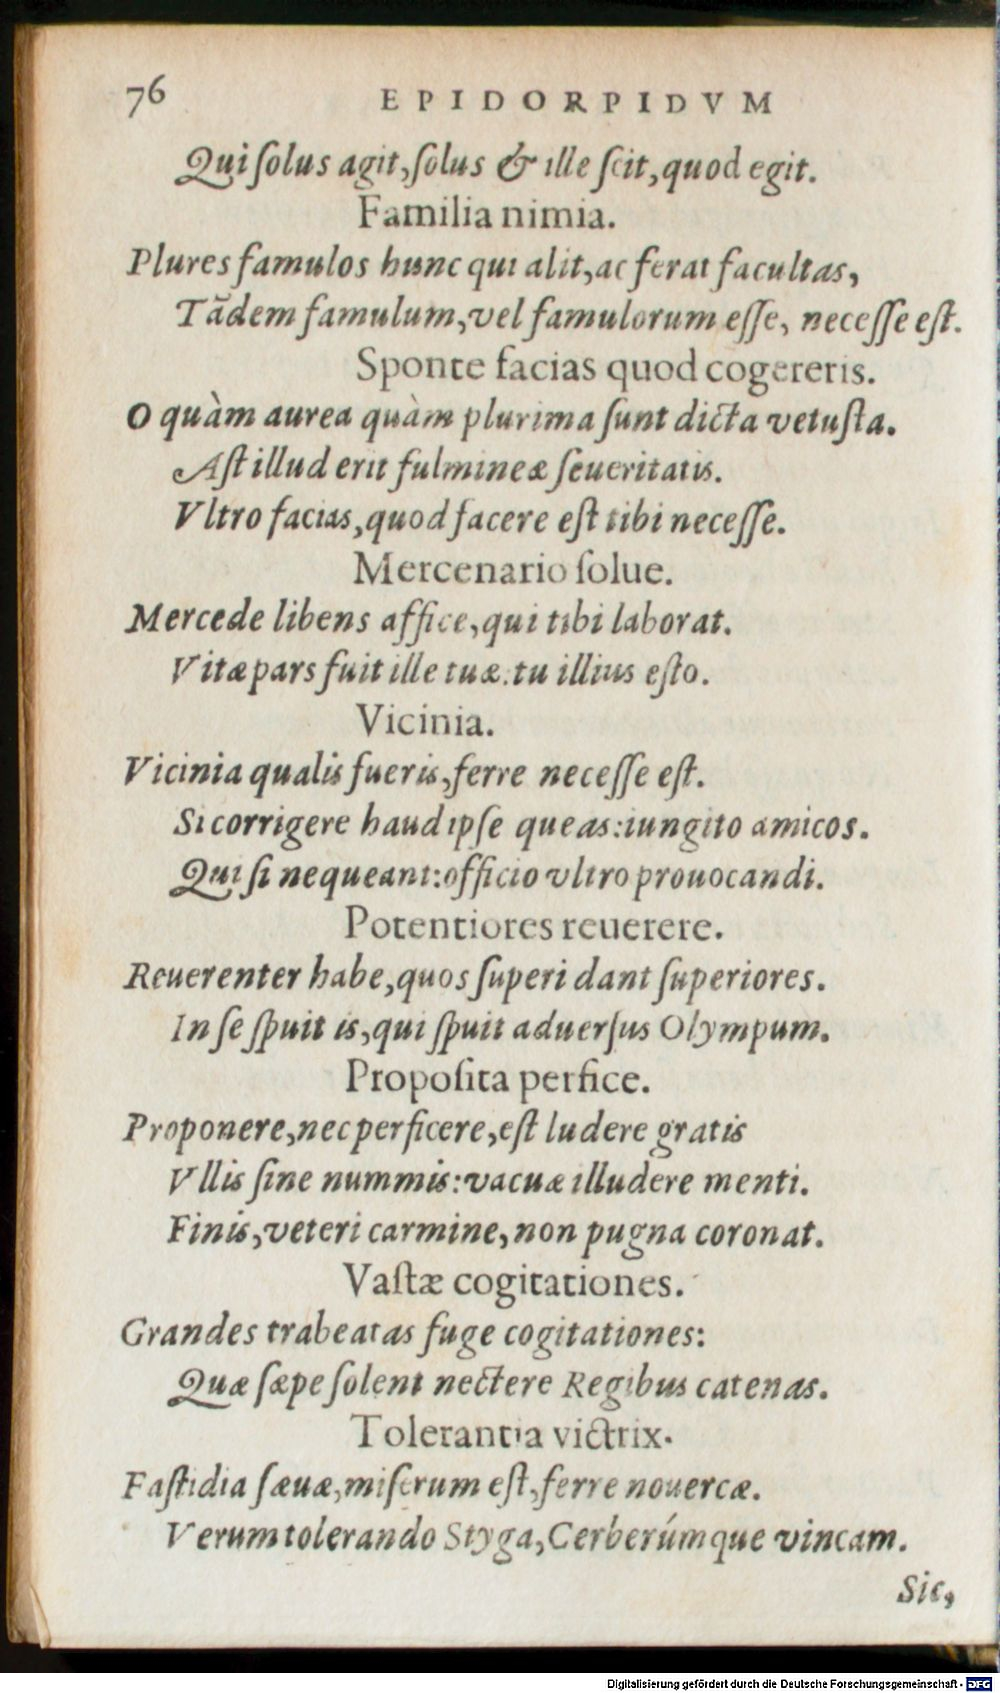 76 EPIDORPIDVM
Qui ſolus agit, ſolus & ille ſcit, quod egit.
Familia nimia.
Plures famulos hunc qui alit, ac ferat facultas,
Tãdem famulum, vel famulorum eſſe, neceſſe eſt.
Sponte facias quod cogereris.
O quàm aurea quàm plurima ſunt dicta vetuſta.
Aſt illud erit fulmineæ ſeueritatis.
Vltro facias, quod facere eſt tibi neceſſe.
Mercenario ſolue.
Mercede libens affice, qui tibi laborat.
Vitæ pars fuit ille tuæ. tu illius eſto.
Vicinia.
Vicinia qualis fueris, ferre neceſſe eſt.
Si corrigere haud ipſe queas: iungito amicos.
Qui ſi nequeant: officio vltro prouocandi.
Potentiores reuerere.
Reuerenter habe, quos ſuperi dant ſuperiores.
In ſe ſpuit is, qui ſpuit aduerſus Olympum.
Propoſita perfice.
Proponere, nec perficere, eſt ludere gratis
Vllis ſine nummis: vacuæ illudere menti.
Finis, veteri carmine, non pugna coronat.
Vaſtæ cogitationes.
Grandes trabeatas fuge cogitationes:
Quæ ſæpe ſolent nectere Regibus catenas.
Tolerantia victrix.
Faſtidia ſæuæ, miſerum eſt, ferre nouercæ.
Verum tolerando Styga, Cerberúmque vincam.
Sic,
Digitalisierung gefördert durch die Deutsche Forschungsgemeinschaft - DFG